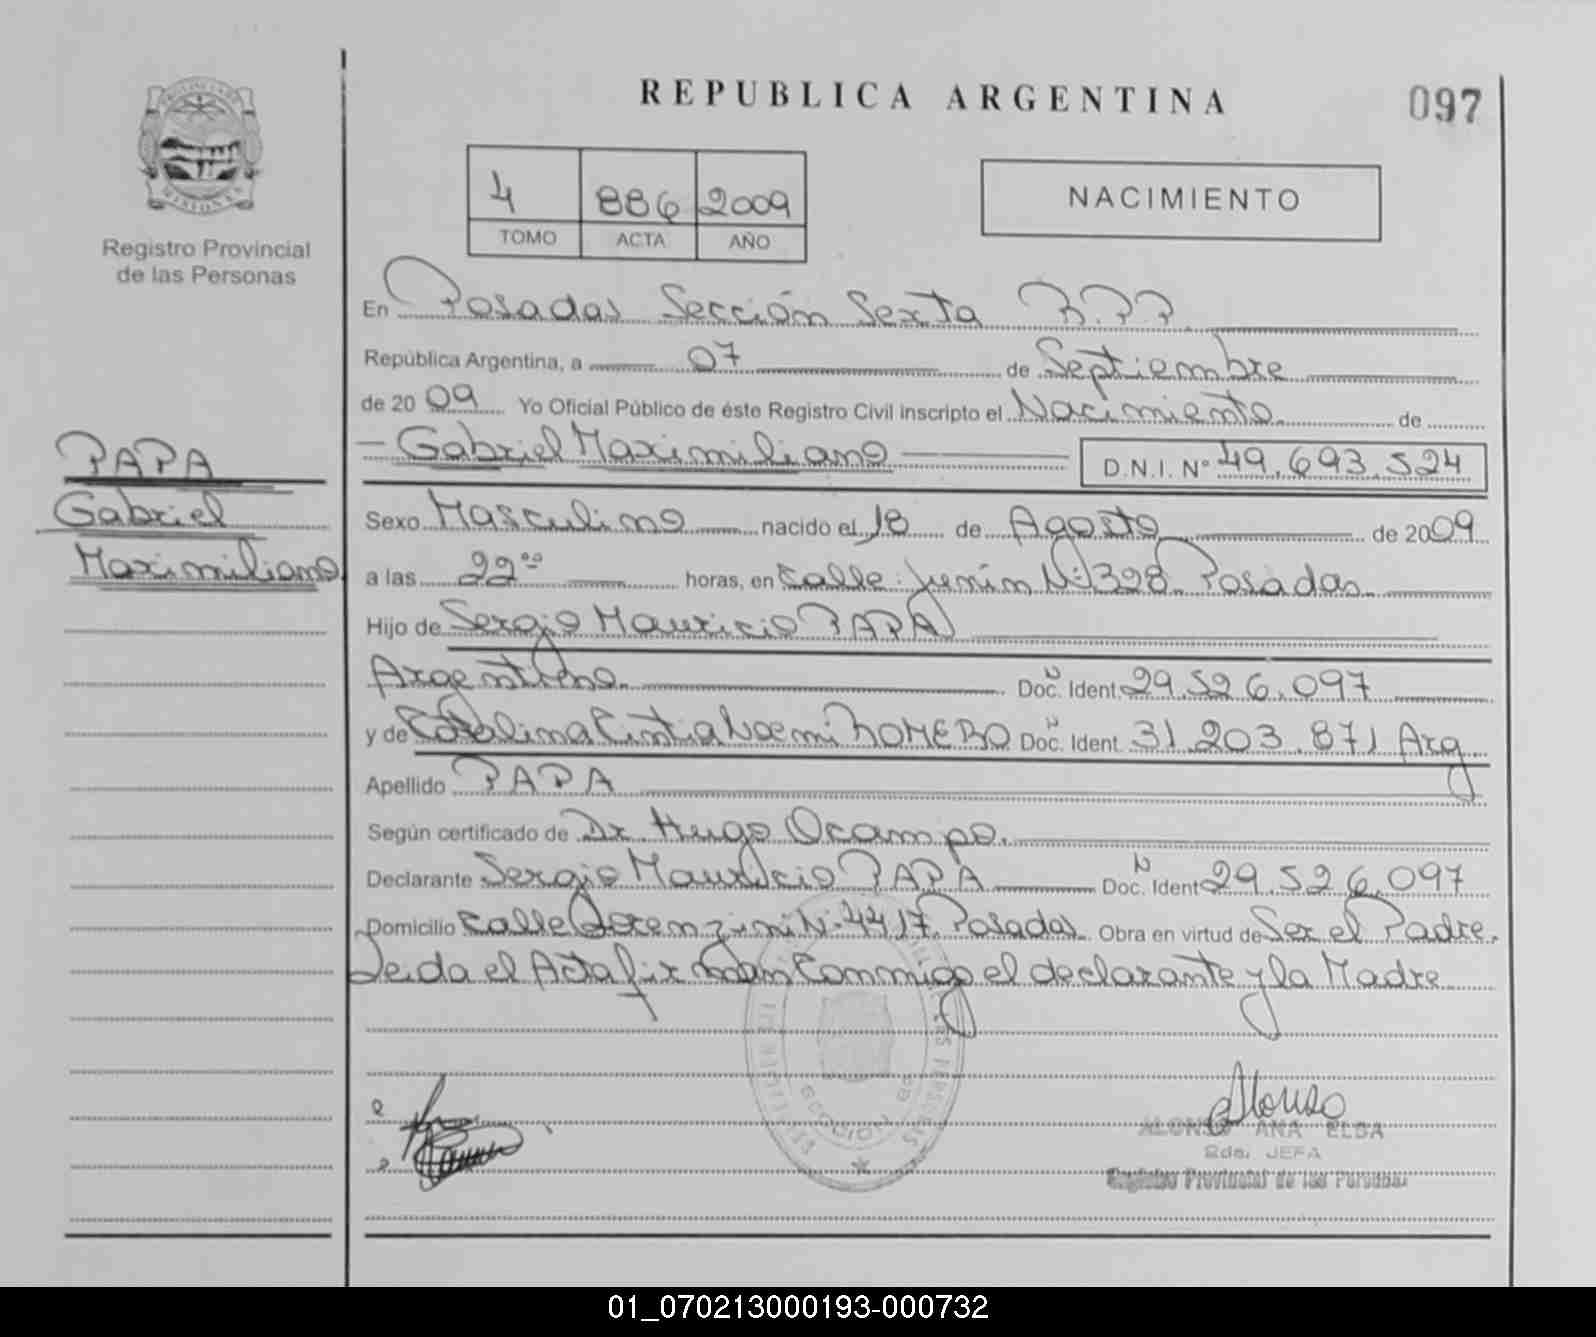 REPUBLICA ARGENTINA
097
PROVINCIA DE
MISIONES
Registro Provincial
de las Personas
4 886 2009
TOMO ACTA AÑO
NACIMIENTO
En Posadas Sección Sexta R.P.P.
República Argentina, a 07 de Septiembre
de 2009 Yo Oficial Público de éste Registro Civil inscripto el Nacimiento de
Gabriel Maximiliano D.N.I. Nº 49.693.524
PAPA
Gabriel
Maximiliano
Sexo Masculino nacido el 18 de Agosto de 2009
a las 22ºº horas, en Calle: Junín Nº: 398. Posadas
Hijo de Sergio Mauricio PAPA
Argentino. Doc. Ident. Nº 29.526.097
y de Catalina Cintia Noemi ROMERO Doc. Ident. Nº 31.203.871 Arg
Apellido PAPA
Según certificado de Dr. Hugo Ocampo.
Declarante Sergio Mauricio PAPA Doc. Ident N 29.526.097
Domicilio Calle Lorenzini Nº 4417. Posadas Obra en virtud de Ser el Padre.
Leida el Acta firman Conmigo el declarante y la Madre
Alonso
ALONSO ANA ELBA
2da. JEFA
Registro Provincial de las Personas
01_070213000193-000732